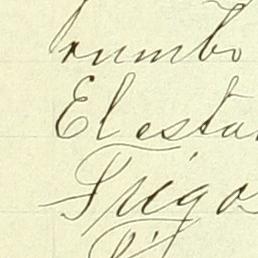 rumbo
El esta
Trigo